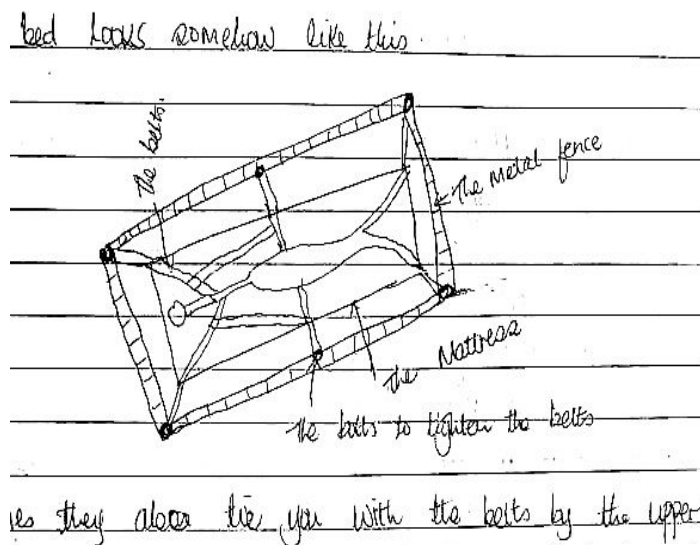 bed looks somehow like this.
The belts.
The Metal fence
The Mattress
The bolts to tighten the belts
they tie you with the belts by the upper